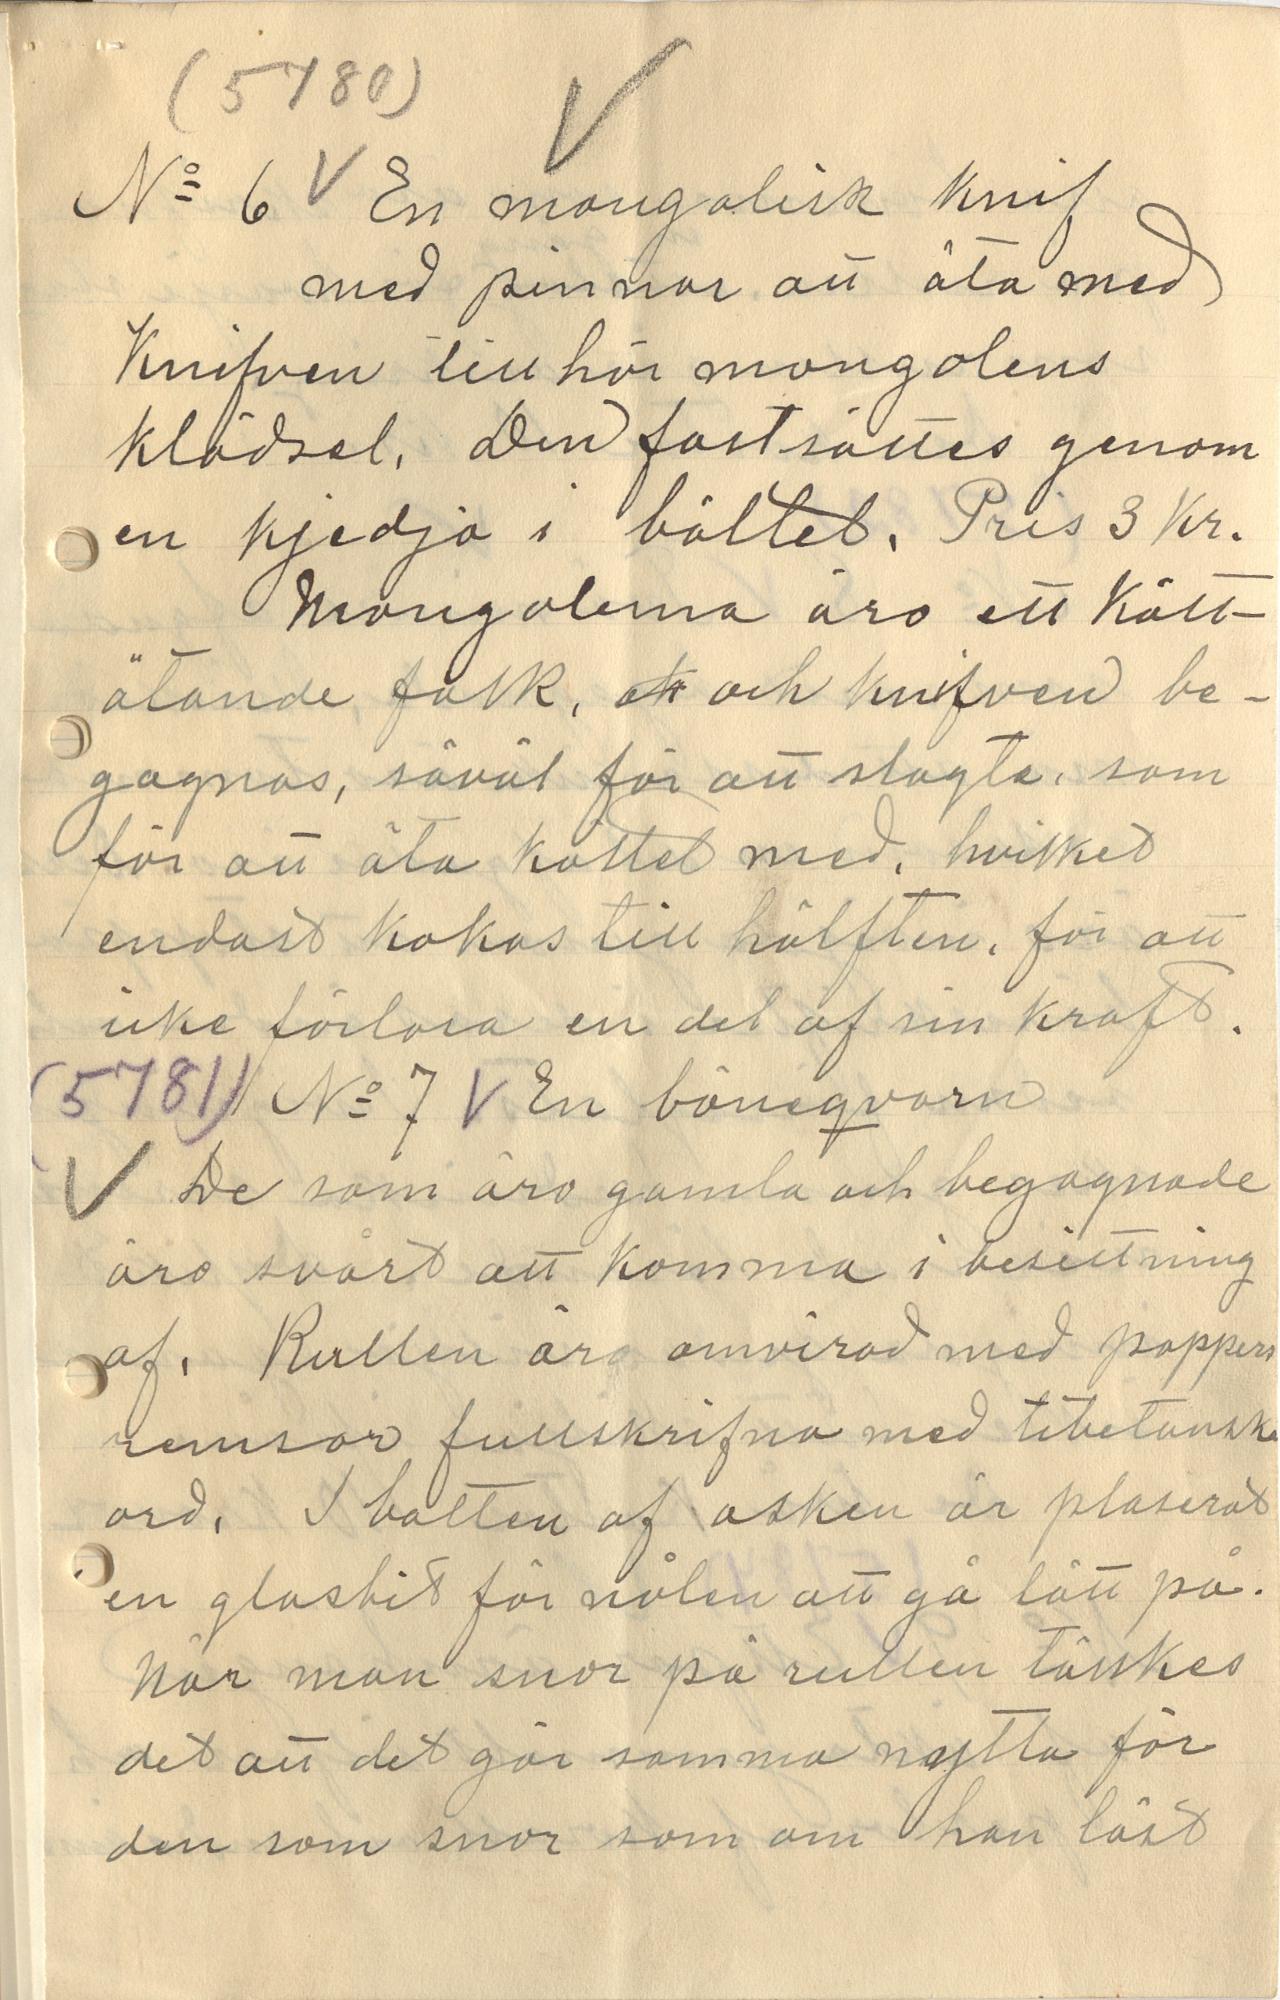 (5780) V
No 6 V En mongolisk knif
med pinnar att äta med
Knifven tillhör mongolens
klädsel. Den fastsättes genom
en kjedja i bältet. Pris 3 Kr.
Mongolerna äro ett kött-
ätande folk, och knifven be-
gagnas, såväl för att slagta, som
för att äta köttet med, hvilket
endast kokas till hälften, för att
icke förlora en del af sin kraft.
(5781) No 7 V En böneqvarn
V De som äro gamla och begagnade
äro svårt att komma i besittning
af. Rullen är omvirad med pappers
remsor fullskrifna med tibetanska
ord. I botten af asken är plaserat
en glasbit för nålen att gå lätt på.
När man snor på rullen tänkes
det att det gör samma nytta för
den som snor som om han läst